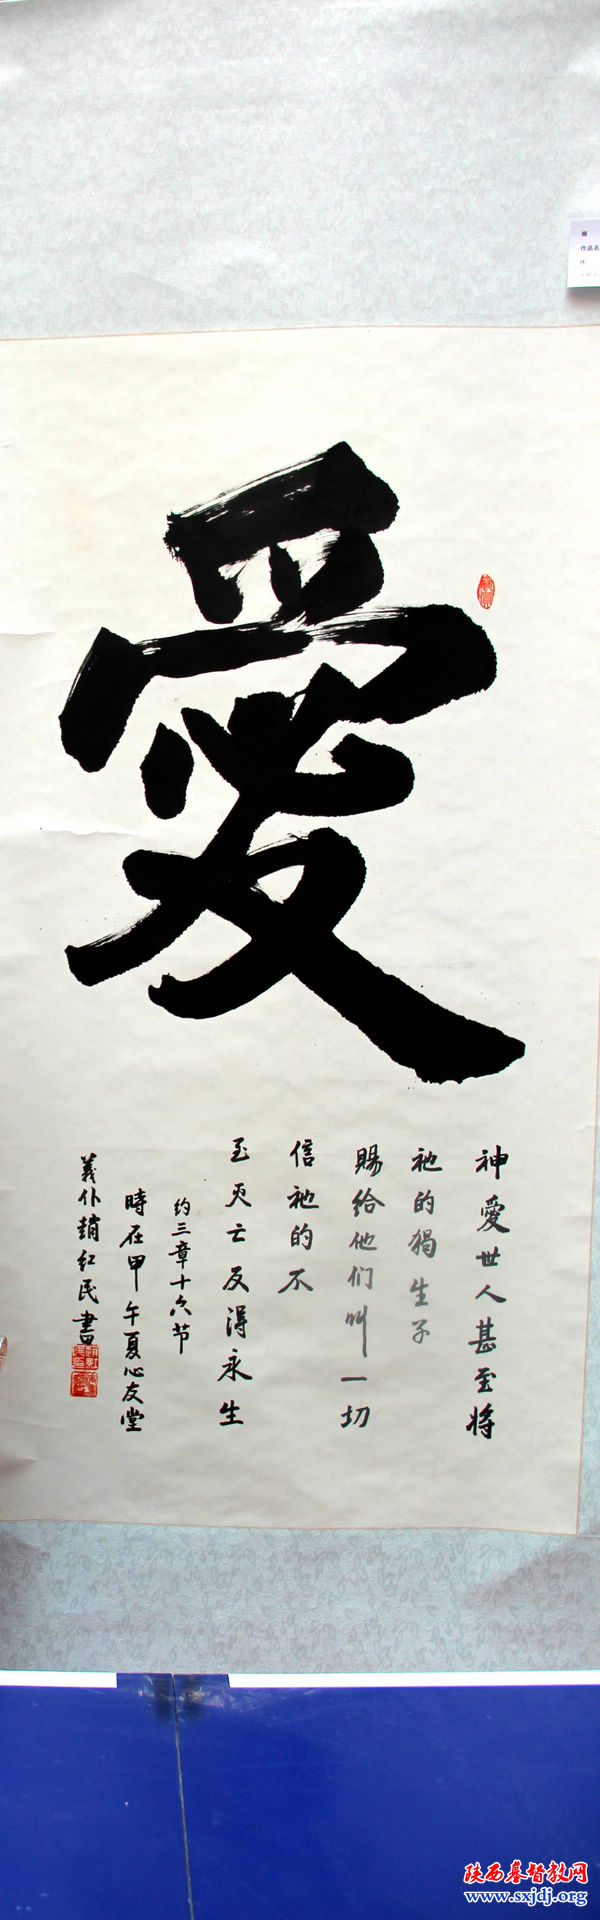 愛
神愛世人甚至将
祂的獨生子
賜给他们叫一切
信祂的不
至灭亡反得永生
约三章十六节
時在甲午夏心友堂
義仆趙红民書
作品名
作
陕西基督教网
www.sxjdj.org